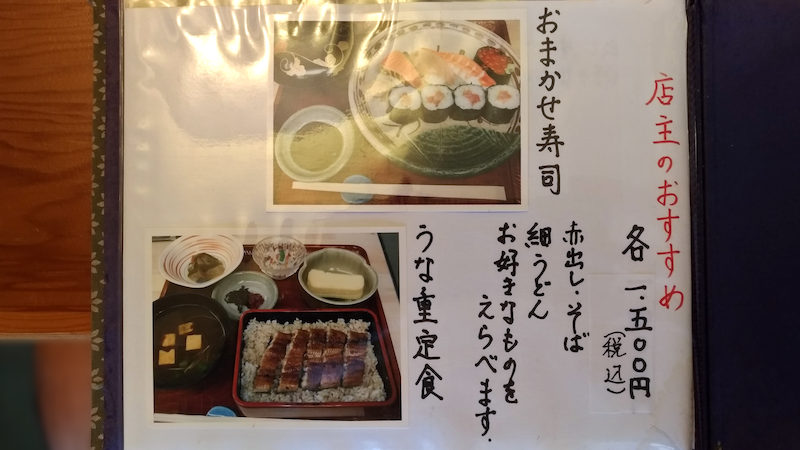 店主のおすすめ
各 一、五〇〇円
(税込)
おまかせ寿司
赤出し・そば
細うどん
お好きなものを
えらべます.
うな重定食